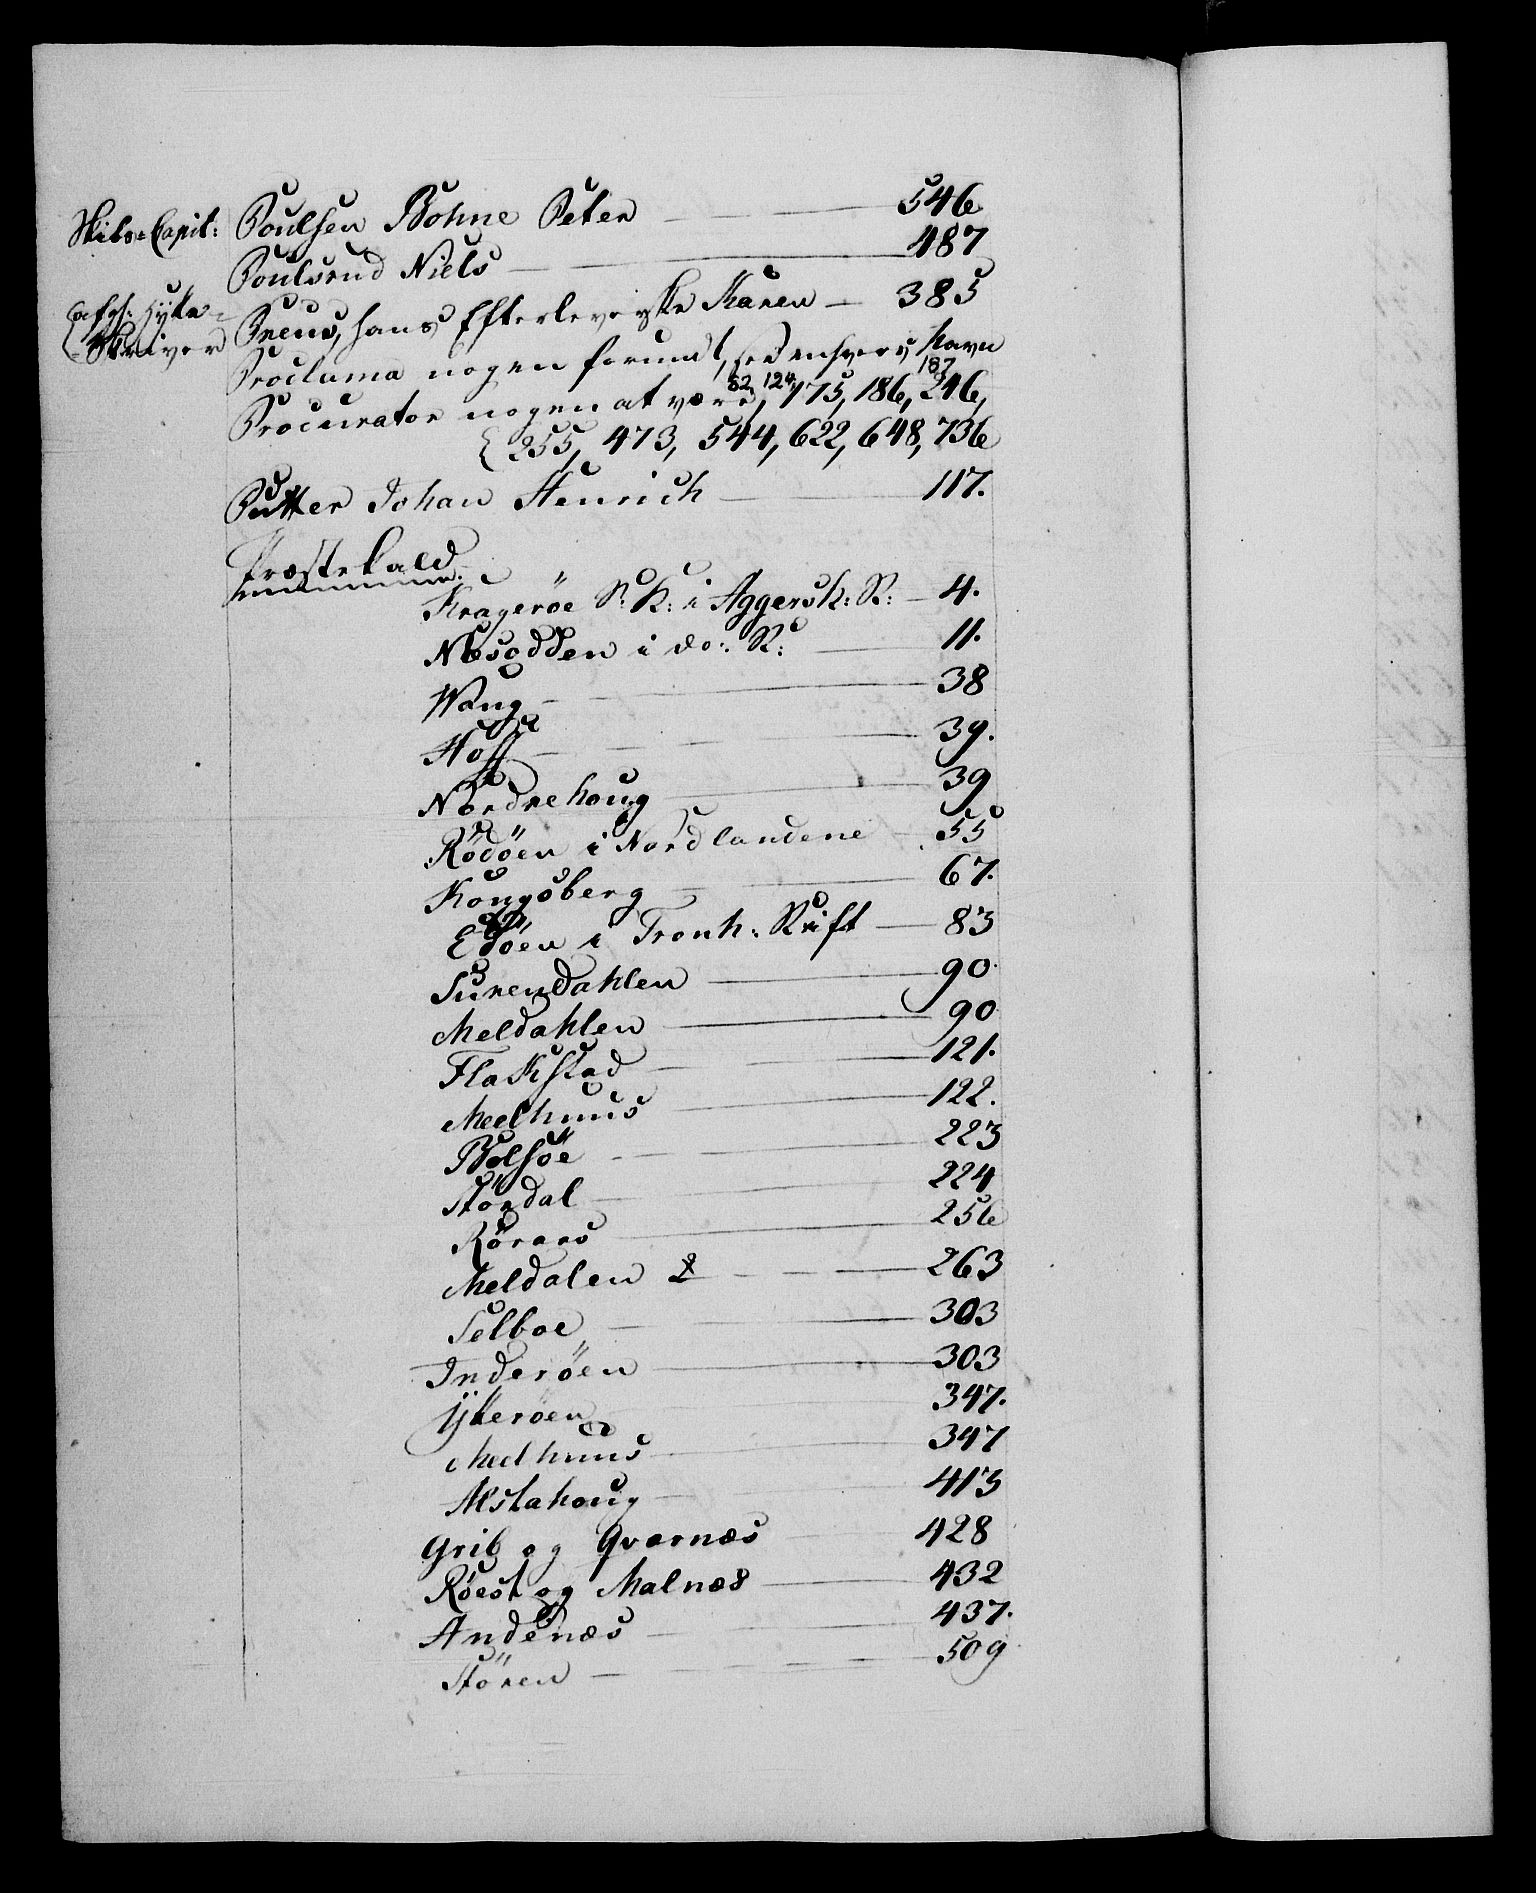 Skibs-Capit: Poulsen Bohne Peter — 546
Poulsrud Niels — 487
(afgh: Byskriver) Preus, hans Efterleverske Karen — 385
Proclama nogen forundt, see enhvers Navn
Procurator nogen at være, 52, 124, 175, 186, 187, 246,
{255, 473, 544, 622, 648, 736
Putter Johan Henrich — 117.
Præstekald
Kragerøe P: K: i Aggersh: St: — 4.
Nesodden i do: St: — 11.
Wang — 38
Hoff — 39.
Nordrehoug — 39
Rödöen i Nordlandene — 55
Kongsberg — 67.
Edöen i Tronh: Stift — 83
Surendahlen — 90
Meldahlen — 90
Flakstad — 121.
Meelhuus — 122.
Bolsöe — 223
Stördal — 224
Röraas — 256
Meldalen — 263
Selboe — 303
Inderöen — 303
Ytteröen — 347.
Meelhuus — 347
Alstahoug — 413
Grib og Qværnæs — 428
Röest og Malnæs — 432
Andenæs — 437.
Stören — 509